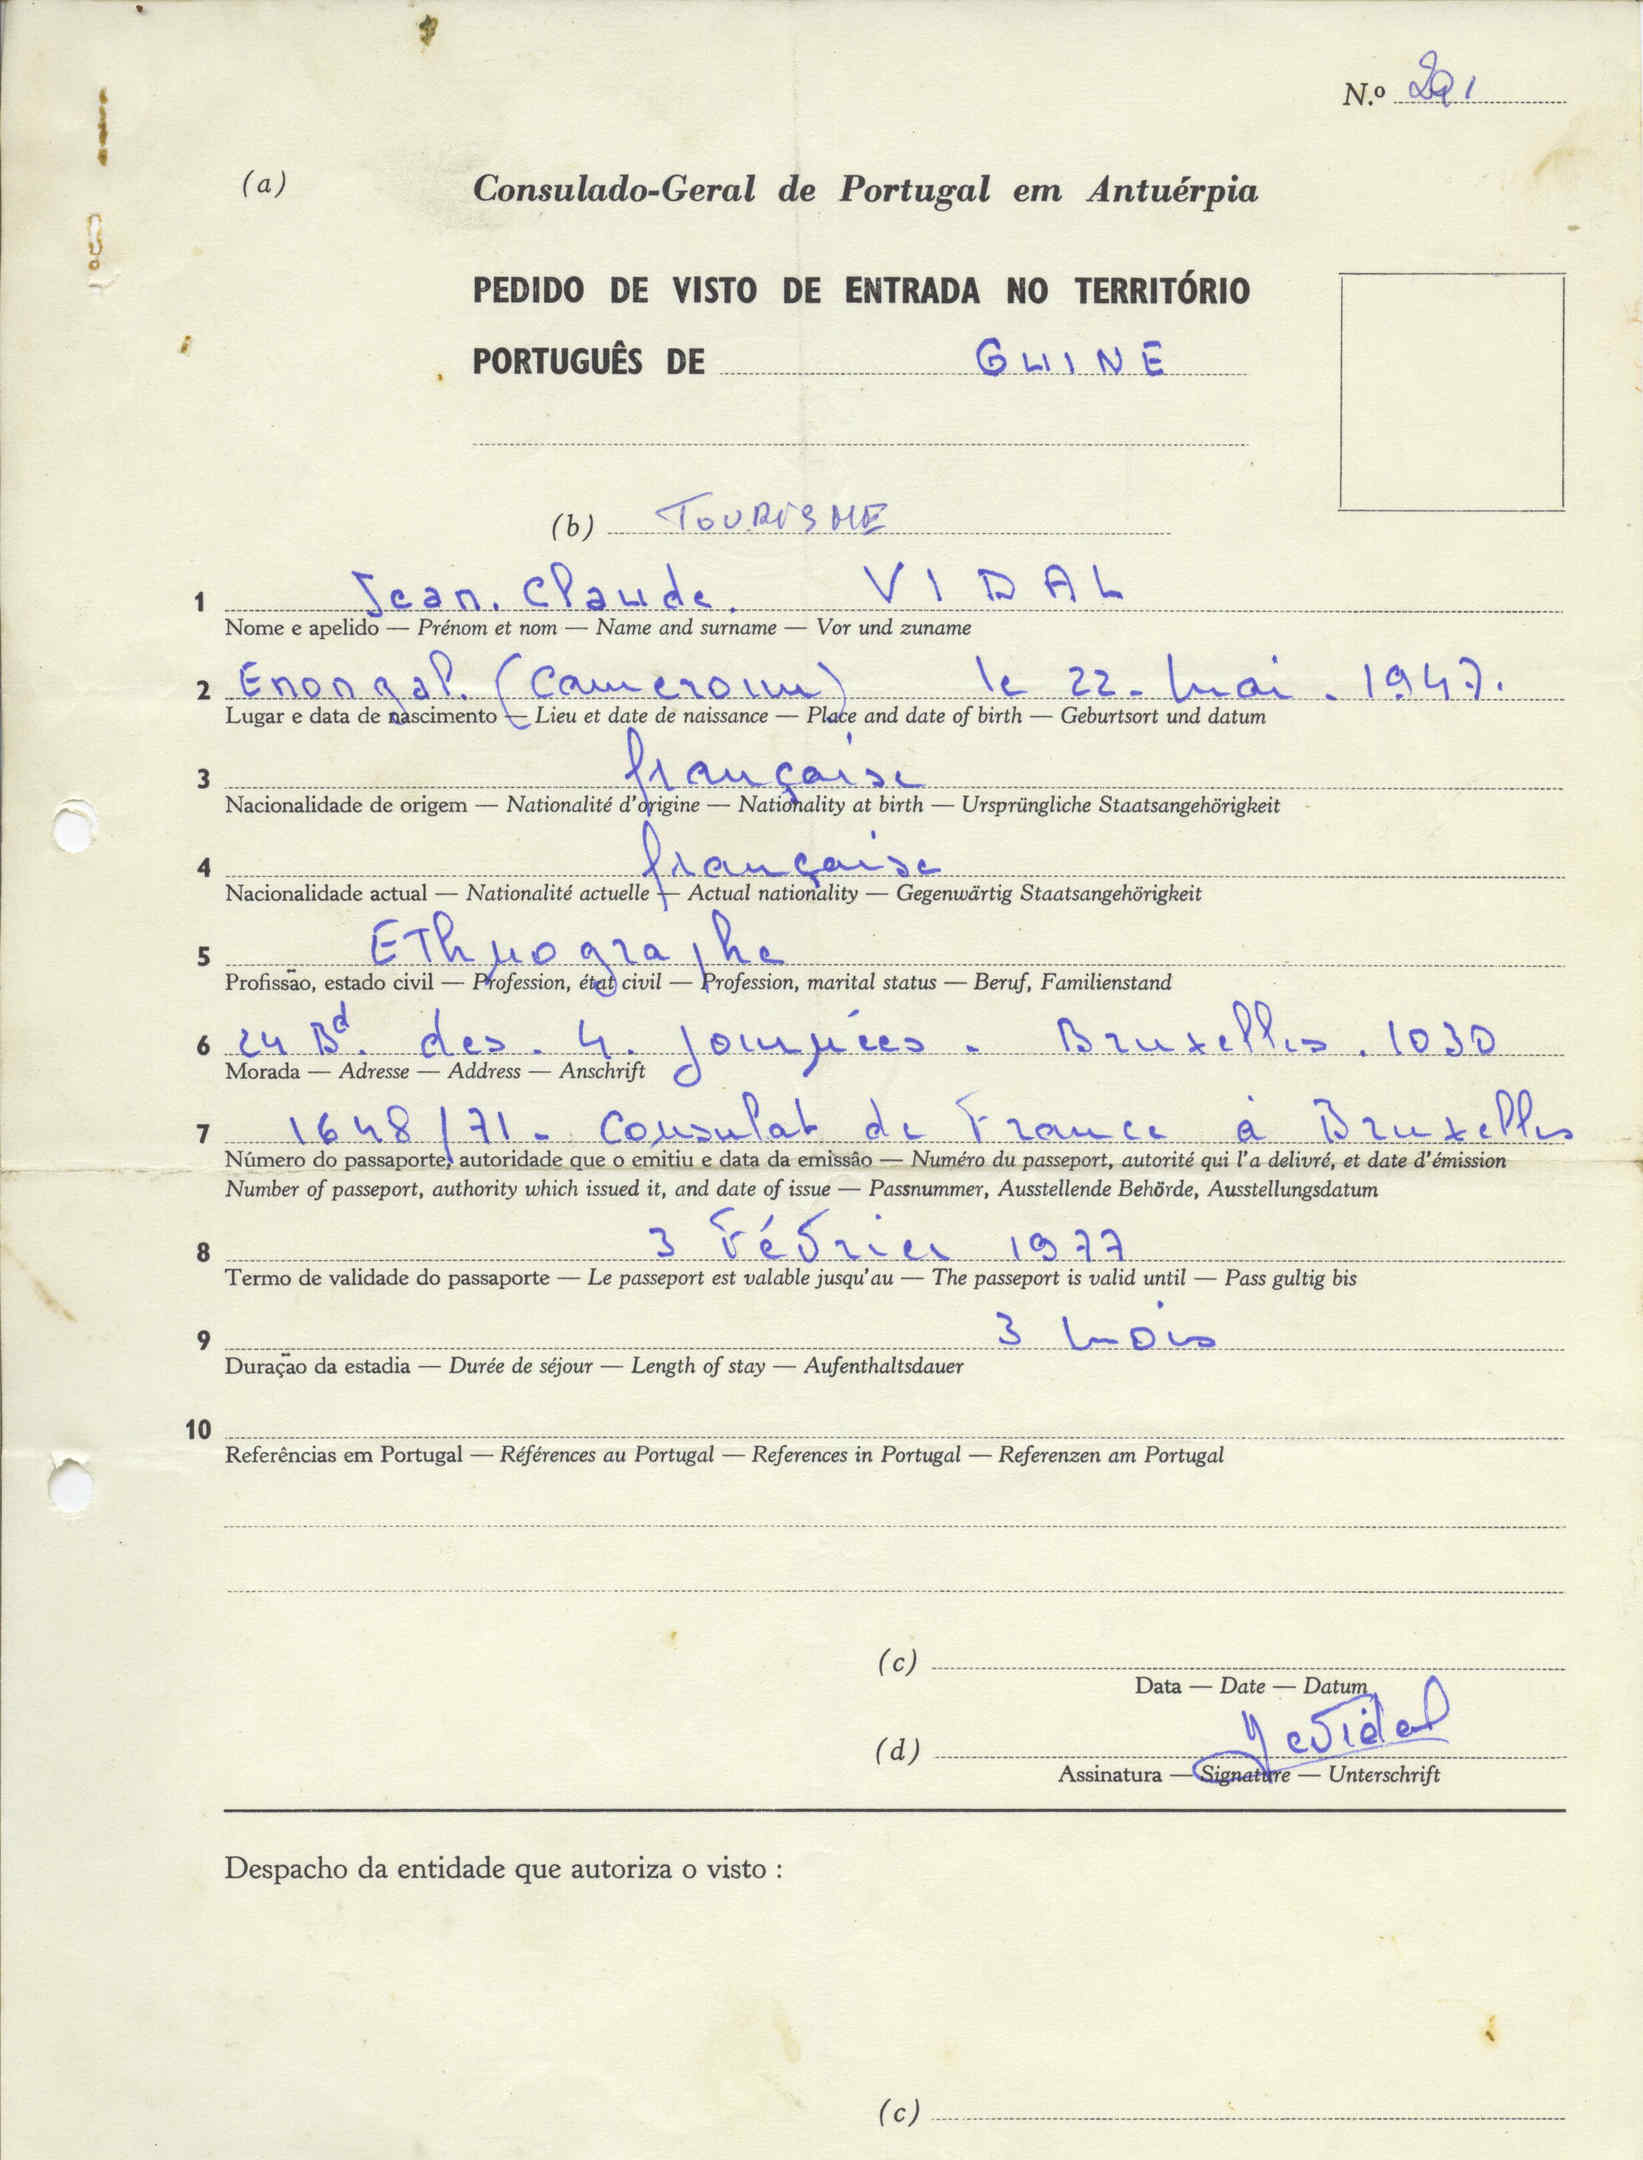 N.º 291
(a) Consulado-Geral de Portugal em Antuérpia
PEDIDO DE VISTO DE ENTRADA NO TERRITÓRIO
PORTUGUÊS DE GUINE
(b) TOURISME
1 Jean. Claude. VIDAL
Nome e apelido — Prénom et nom — Name and surname — Vor und zuname
2 Enongal. (Cameroun) le 22. mai. 1947.
Lugar e data de nascimento — Lieu et date de naissance — Place and date of birth — Geburtsort und datum
3 française
Nacionalidade de origem — Nationalité d'origine — Nationality at birth — Ursprüngliche Staatsangehörigkeit
4 française
Nacionalidade actual — Nationalité actuelle — Actual nationality — Gegenwärtig Staatsangehörigkeit
5 Ethnographe
Profissão, estado civil — Profession, état civil — Profession, marital status — Beruf, Familienstand
6 24 Bd. des. 4. journées. Bruxelles. 1030
Morada — Adresse — Address — Anschrift
7 1648/71 - Consulat de France à Bruxelles
Número do passaporte, autoridade que o emitiu e data da emissão — Numéro du passeport, autorité qui l'a delivré, et date d'émission
Number of passeport, authority which issued it, and date of issue — Passnummer, Ausstellende Behörde, Ausstellungsdatum
8 3 Février 1977
Termo de validade do passaporte — Le passeport est valable jusqu'au — The passeport is valid until — Pass gultig bis
9 3 mois
Duração da estadia — Durée de séjour — Length of stay — Aufenthaltsdauer
10
Referências em Portugal — Références au Portugal — References in Portugal — Referenzen am Portugal
(c)
Data — Date — Datum
(d) JcVidal
Assinatura — Signature — Unterschrift
Despacho da entidade que autoriza o visto :
(c)